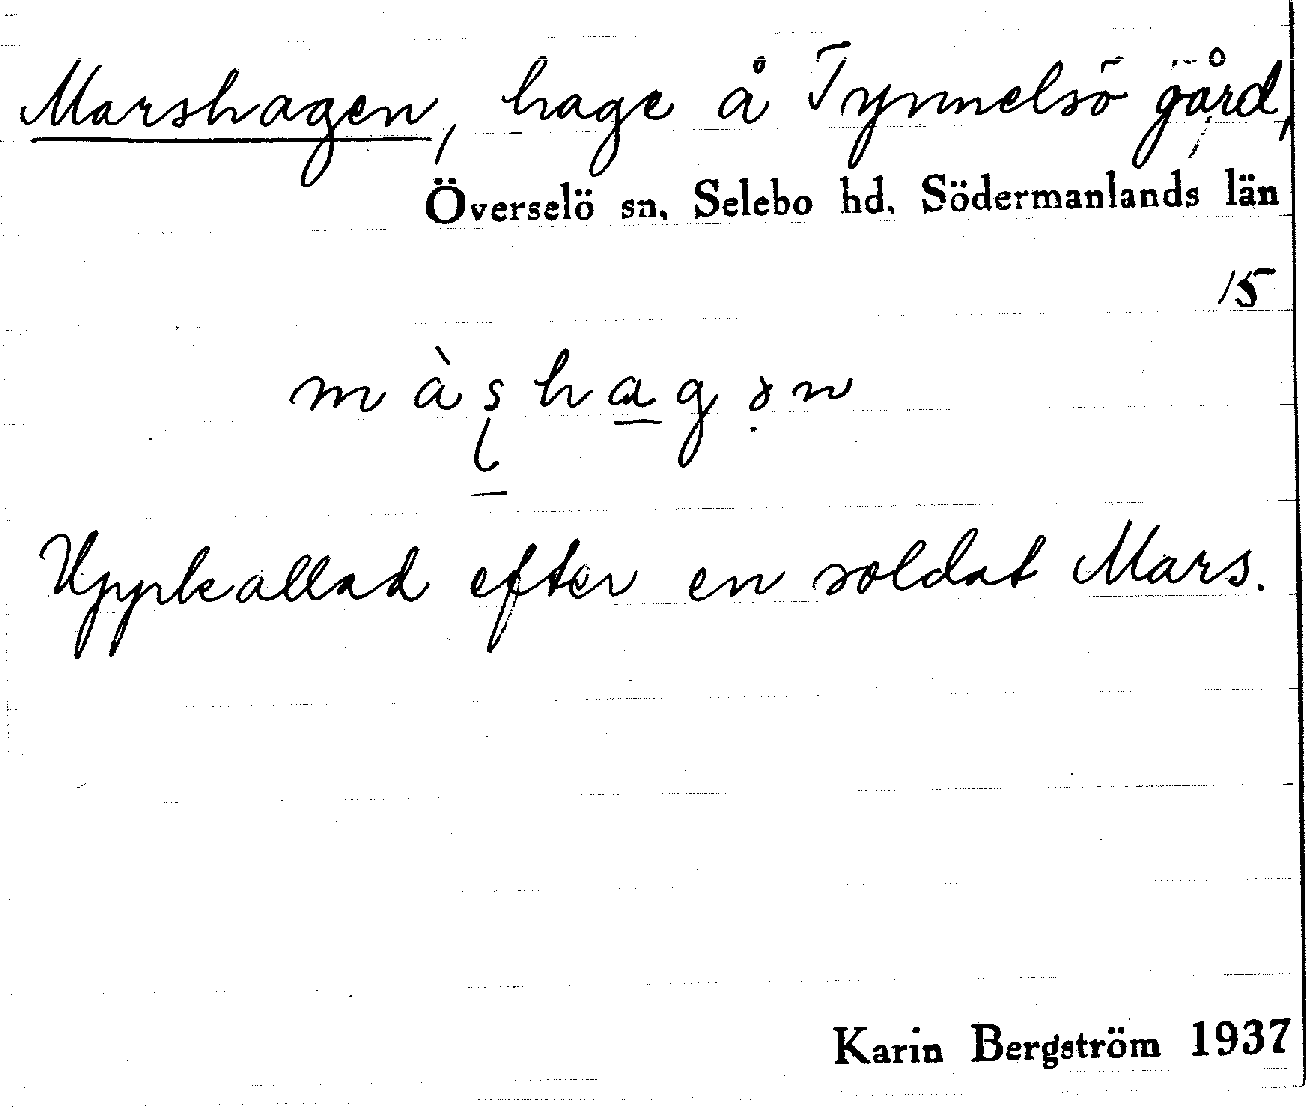 Marshagen, hage å Tynnelsö gård,
Överselö sn. Selebo hd. Södermanlands län
15
màshagən
Uppkallad efter en soldat Mars.
Karin Bergström 1937